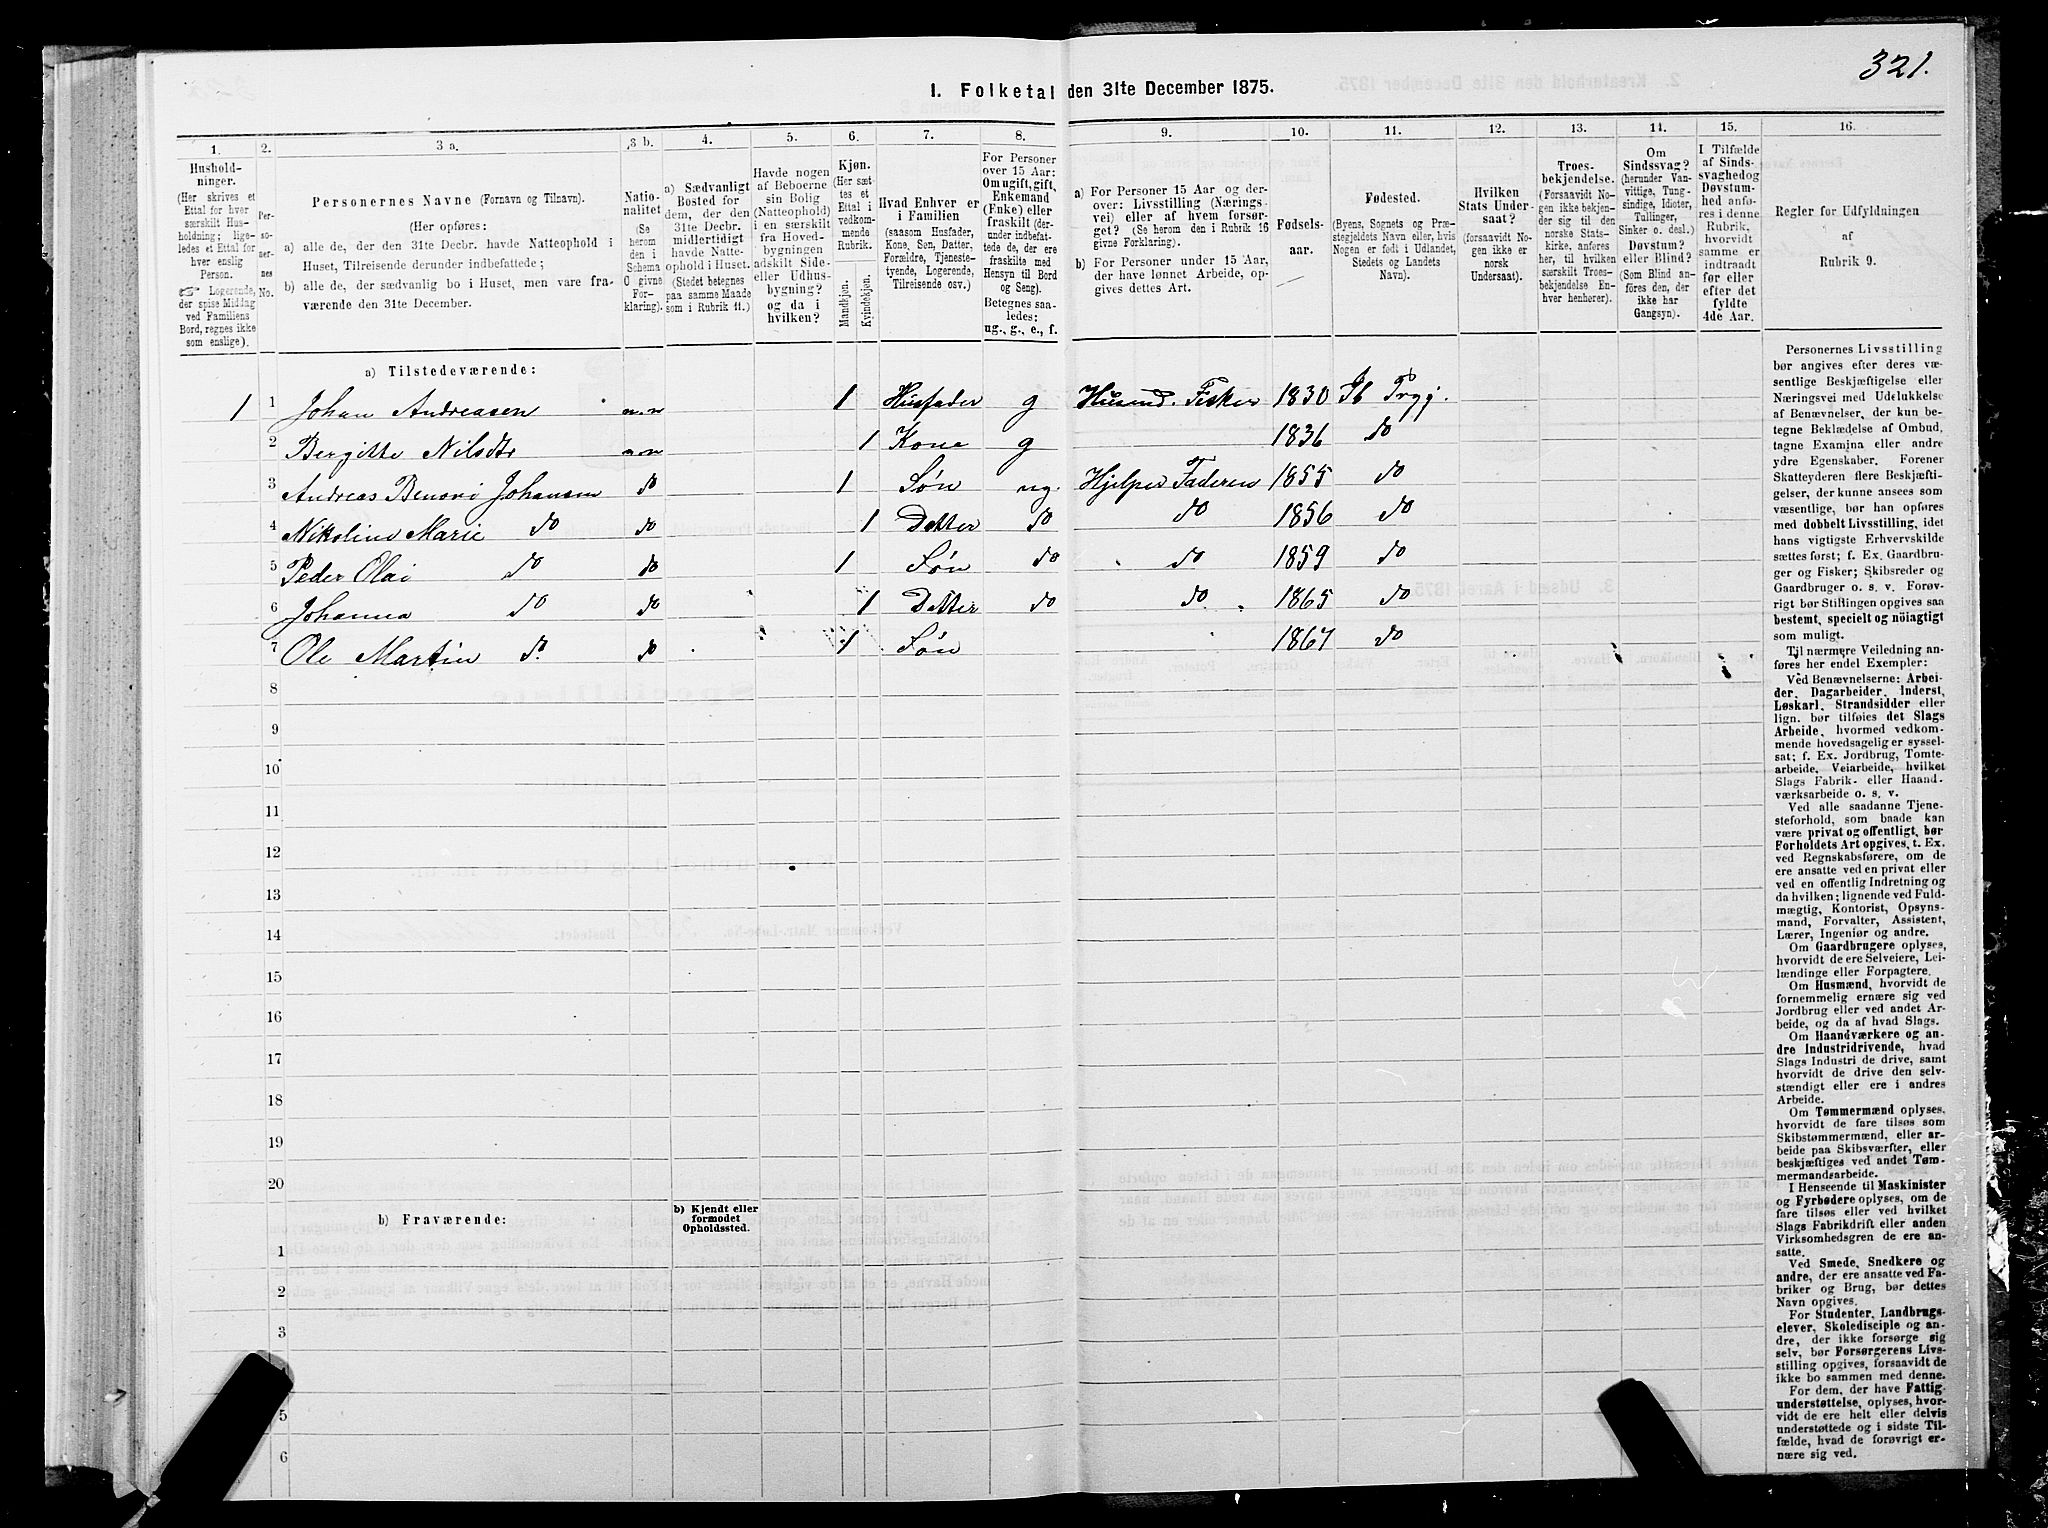 321.
1. Folketal den 31te December 1875.
1. 2. 3 a. 3 b. 4. 5. 6. 7. 8. 9. 10. 11. 12. 13. 14. 15. 16.
Hushold-
ninger.
(Her skrives et
Ettal for hver
særskilt Hus-
holdning; lige-
ledes et Ettal for
hver enslig
Person.
☞ Logerende,
der spise Middag
ved Familiens
Bord, regnes ikke
som enslige).
Per-
so-
ner-
nes
No.
Personernes Navne (Fornavn og Tilnavn).
(Her opføres:
a) alle de, der den 31te Decbr. havde Natteophold i
Huset, Tilreisende derunder indbefattede;
b) alle de, der sædvanlig bo i Huset, men vare fra-
værende den 31te December.
Natio-
nalitet
(Se
herom
den i
Schema
O givne
For-
klaring).
a) Sædvanligt
Bosted for
dem, der den
31te Decbr.
midlertidigt
havde Natte-
ophold i Huset.
(Stedet betegnes
paa samme Maade
som i Rubrik 11.)
Havde nogen
af Beboerne
sin Bolig
(Natteophold)
i en særskilt
fra Hoved-
bygningen
adskilt Side-
eller Udhus-
bygning?
og da i
hvilken?
Kjøn.
(Her sæt-
tes et
Ettal i
vedkom-
mende
Rubrik.
Mandkjøn.
Kvindekjøn.
Hvad Enhver er
i Familien
(saasom Husfader,
Kone, Søn, Datter,
Forældre, Tjeneste-
tyende, Logerende,
Tilreisende osv.)
For Personer
over 15 Aar:
Om ugift, gift,
Enkemand
(Enke) eller
fraskilt (her-
under indbefat-
tede de, der ere
fraskilte med
Hensyn til Bord
og Seng).
Betegnes saa-
ledes:
ug., g., e., f.
a) For Personer 15 Aar og der-
over: Livsstilling (Nærings-
vei) eller af hvem forsør-
get? (Se herom den i Rubrik 16
givne Forklaring).
b) For Personer under 15 Aar,
der have lønnet Arbeide, op-
gives dettes Art.
Fødsels-
aar.
Fødested.
(Byens, Sognets og Præ-
stegjeldets Navn eller, hvis
Nogen er født i Udlandet,
Stedets og Landets
Navn).
Hvilken
Stats Under-
saat?
(forsaavidt No-
gen ikke er
norsk
Undersaat).
Troes-
bekjendelse.
(Forsaavidt No-
gen ikke bekjen-
der sig til den
norske Stats-
kirke, anføres
her, til hvilken
særskilt Troes-
bekjendelse En-
hver henhører).
Om
Sindssvag?
(herunder Van-
vittige, Tung-
sindige, Idioter,
Tullinger,
Sinker o. desl.)
Døvstum?
eller Blind?
(Som Blind an-
føres den, der
ikke har
Gangsyn).
I Tilfælde
af Sinds-
svaghed og
Døvstum-
hed anfø-
res i denne
Rubrik,
hvorvidt
samme er
indtraadt
før eller
efter det
fyldte
4de Aar.
Regler for Udfyldningen
af
Rubrik 9.
a) Tilstedeværende:
1 1 Johan Andreasen n.n 1 Husfader g Husmd. Fisker 1830
2 Bergitte Nilsdtr n.n 1 Kone g 1836 do
3 Andreas Benoni Johansen do 1 Søn ug. Hjelper Faderen 1855 do
4 Nikoline Marie do do 1 Datter do do 1856 do
5 Peder Olai do do 1 Søn do do 1859 do
6 Johanna do do 1 Datter do do 1865 do
7 Ole Martin do. do 1 Søn 1867 do
8
9
10
11
12
13
14
15
16
17
18
19
20
b) Fraværende:
b) Kjendt eller
formodet
Opholdssted.
1
2
3
5
6
Personernes Livsstilling
bør angives efter deres væ-
sentlige Beskjæftigelse eller
Næringsvei med Udelukkelse
af Benævnelser, der kun be-
tegne Beklædelse af Ombud,
tagne Examina eller andre
ydre Egenskaber. Forener
Skatteyderen flere Beskjæfti-
gelser, der kunne ansees som
væsentlige, bør han opføres
med dobbelt Livsstilling, idet
hans vigtigste Erhvervskilde
sættes først; f. Ex. Gaardbru-
ger og Fisker; Skibsreder og
Gaardbruger o. s. v. Forøv-
rigt bør Stillingen opgives saa
bestemt, specielt og nöiagtigt
som muligt.
Til nærmere Veiledning an-
føres her endel Exempler:
Ved Benævnelserne: Arbei-
der, Dagarbeider, Inderst,
Løskarl, Strandsidder eller
lign. bør tilføies det Slags
Arbeide, hvormed vedkom-
mende hovedsagelig er syssel-
sat; f. Ex. Jordbrug, Tomte-
arbeide, Veiarbeide, hvilket
Slags Fabrik- eller Haand-
værksarbeide o. s. v.
Ved alle saadanne Tjene-
steforhold, som baade kan
være privat og offentligt, bør
Forholdets Art opgives, t. Ex.
ved Regnskabsførere, om de
ere ansatte ved en privat eller
ved en offentlig Indretning og
da hvilken; lignende ved Fuld-
mægtig, Kontorist, Opsyns-
mand, Forvalter, Assistent,
Lærer, Ingeniør og andre.
Om Gaardbrugere oplyses,
hvorvidt de ere Selveiere, Lei-
lændinge eller Forpagtere.
Om Husmænd, hvorvidt de
fornemmelig ernære sig ved
Jordbrug eller ved andet Ar-
beide, og da af hvad Slags.
Om Haandværkere og an-
dre Industridrivende, hvad
Slags Industri de drive, samt
hvorvidt de drive den selv-
stændigt eller ere i andres
Arbeide.
Om Tømmermænd oplyses,
hvorvidt de fare tilsøs som
Skibstømmermænd, eller ar-
beide paa Skibsværfter, eller
beskjæftiges ved andet Tøm-
mermandsarbeide.
I Henseende til Maskinister
og Fyrbødere oplyses, om de
fare tilsøs eller ved hvilket
Slags Fabrikdrift eller anden
Virksomhedsgren de ere an-
satte.
Ved Smede, Snedkere og
andre, der ere ansatte ved Fa-
briker og Brug, bør dettes
Navn opgives.
For Studenter, Landbrugs-
elever, Skoledisciple og an-
dre, der ikke forsørge sig
selv, bør Forsørgerens Livs-
stilling opgives, forsaavidt de
ikke bo sammen med denne.
For dem, der have Fattig-
understøttelse, oplyses, hvor-
vidt de ere helt eller delvis
understøttede og i sidste Til-
fælde, hvad de forøvrigt er-
nære sig ved.